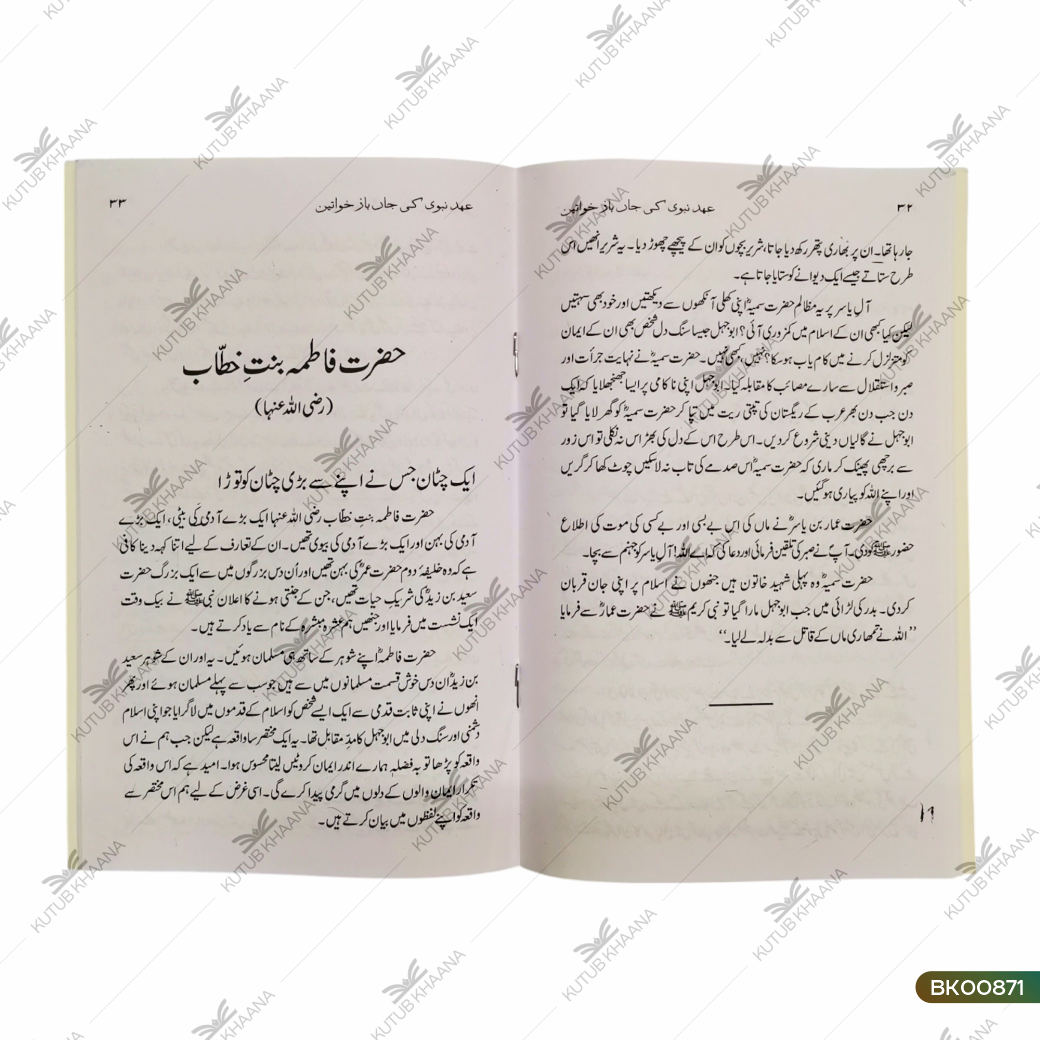 ۳۲
عہد نبوی کی جاں باز خواتین
جارہا تھا۔ ان پر بھاری پتھر رکھ دیا جاتا، شریر بچوں کو ان کے پیچھے چھوڑ دیا ۔ یہ شریر انھیں اس
طرح ستاتے جیسے ایک دیوانے کو ستایا جاتا ہے۔
آلِ یاسر پر یہ مظالم حضرت سمیہؓ اپنی کھلی آنکھوں سے دیکھتیں اور خود بھی سہتیں
لیکن کیا کبھی ان کے اسلام میں کمزوری آئی؟ ابوجہل جیسا سنگ دل شخص بھی ان کے ایمان
کو متزلزل کرنے میں کام یاب ہوسکا؟ نہیں، کبھی نہیں۔ حضرت سمیہؓ نے نہایت جرأت اور
صبر و استقلال سے سارے مصائب کا مقابلہ کیا۔ ابوجہل اپنی ناکامی پر ایسا جھنجھلایا کہ ایک
دن جب دن بھر عرب کے ریگستان کی تپتی ریت میں تپا کر حضرت سمیہؓ کو گھر لایا گیا تو
ابوجہل نے گالیاں دینی شروع کردیں۔ اس طرح اس کے دل کی بھڑاس نہ نکلی تو اس زور
سے برچھی پھینک کر ماری کہ حضرت سمیہؓ اس صدمے کی تاب نہ لاسکیں چوٹ کھا کر گریں
اور اپنے اللہ کو پیاری ہوگئیں۔
حضرت عمار بن یاسرؓ نے ماں کی اس بے بسی اور بے کسی کی موت کی اطلاع
حضور ﷺ کو دی۔ آپؐ نے صبر کی تلقین فرمائی اور دعا کی کہ اے اللہ! آلِ یاسر کو جہنم سے بچا۔
حضرت سمیہؓ وہ پہلی شہید خاتون ہیں جنھوں نے اسلام پر اپنی جان قربان
کردی۔ بدر کی لڑائی میں جب ابوجہل مارا گیا تو نبی کریم ﷺ نے حضرت عمارؓ سے فرمایا
’’اللہ نے تمھاری ماں کے قاتل سے بدلہ لے لیا۔‘‘
عہد نبوی کی جاں باز خواتین
۳۳
حضرت فاطمہ بنتِ خطّاب
(رضی اللہ عنہا)
ایک چٹان جس نے اپنے سے بڑی چٹان کو توڑا
حضرت فاطمہ بنتِ خطاب رضی اللہ عنہا ایک بڑے آدمی کی بیٹی، ایک بڑے
آدمی کی بہن اور ایک بڑے آدمی کی بیوی تھیں۔ ان کے تعارف کے لیے اتنا کہہ دینا کافی
ہے کہ وہ خلیفۂ دوم حضرت عمرؓ کی بہن تھیں اور اُن دس بزرگوں میں سے ایک بزرگ حضرت
سعید بن زیدؓ کی شریکِ حیات تھیں، جن کے جنتی ہونے کا اعلان نبی ﷺ نے بیک وقت
ایک نشست میں فرمایا اور جنھیں ہم عشرہ مبشرہ کے نام سے یاد کرتے ہیں۔
حضرت فاطمہؓ اپنے شوہر کے ساتھ ہی مسلمان ہوئیں۔ یہ اور ان کے شوہر سعید
بن زیدؓ ان دس خوش قسمت مسلمانوں میں سے ہیں جو سب سے پہلے مسلمان ہوئے اور پھر
انھوں نے اپنی ثابت قدمی سے ایک ایسے شخص کو اسلام کے قدموں میں لا گرایا جو اپنی اسلام
دشمنی اور سنگ دلی میں ابوجہل کا مدِّ مقابل تھا۔ یہ ایک مختصر سا واقعہ ہے لیکن جب ہم نے اس
واقعہ کو پڑھا تو بہ فضلہٖ ہمارے اندر ایمان کروٹیں لیتا محسوس ہوا۔ امید ہے کہ اس واقعہ کی
تکرار ایمان والوں کے دلوں میں گرمی پیدا کرے گی۔ اسی غرض کے لیے ہم اس مختصر سے
واقعہ کو اپنے لفظوں میں بیان کرتے ہیں۔
KUTUB KHAANA
BK00871